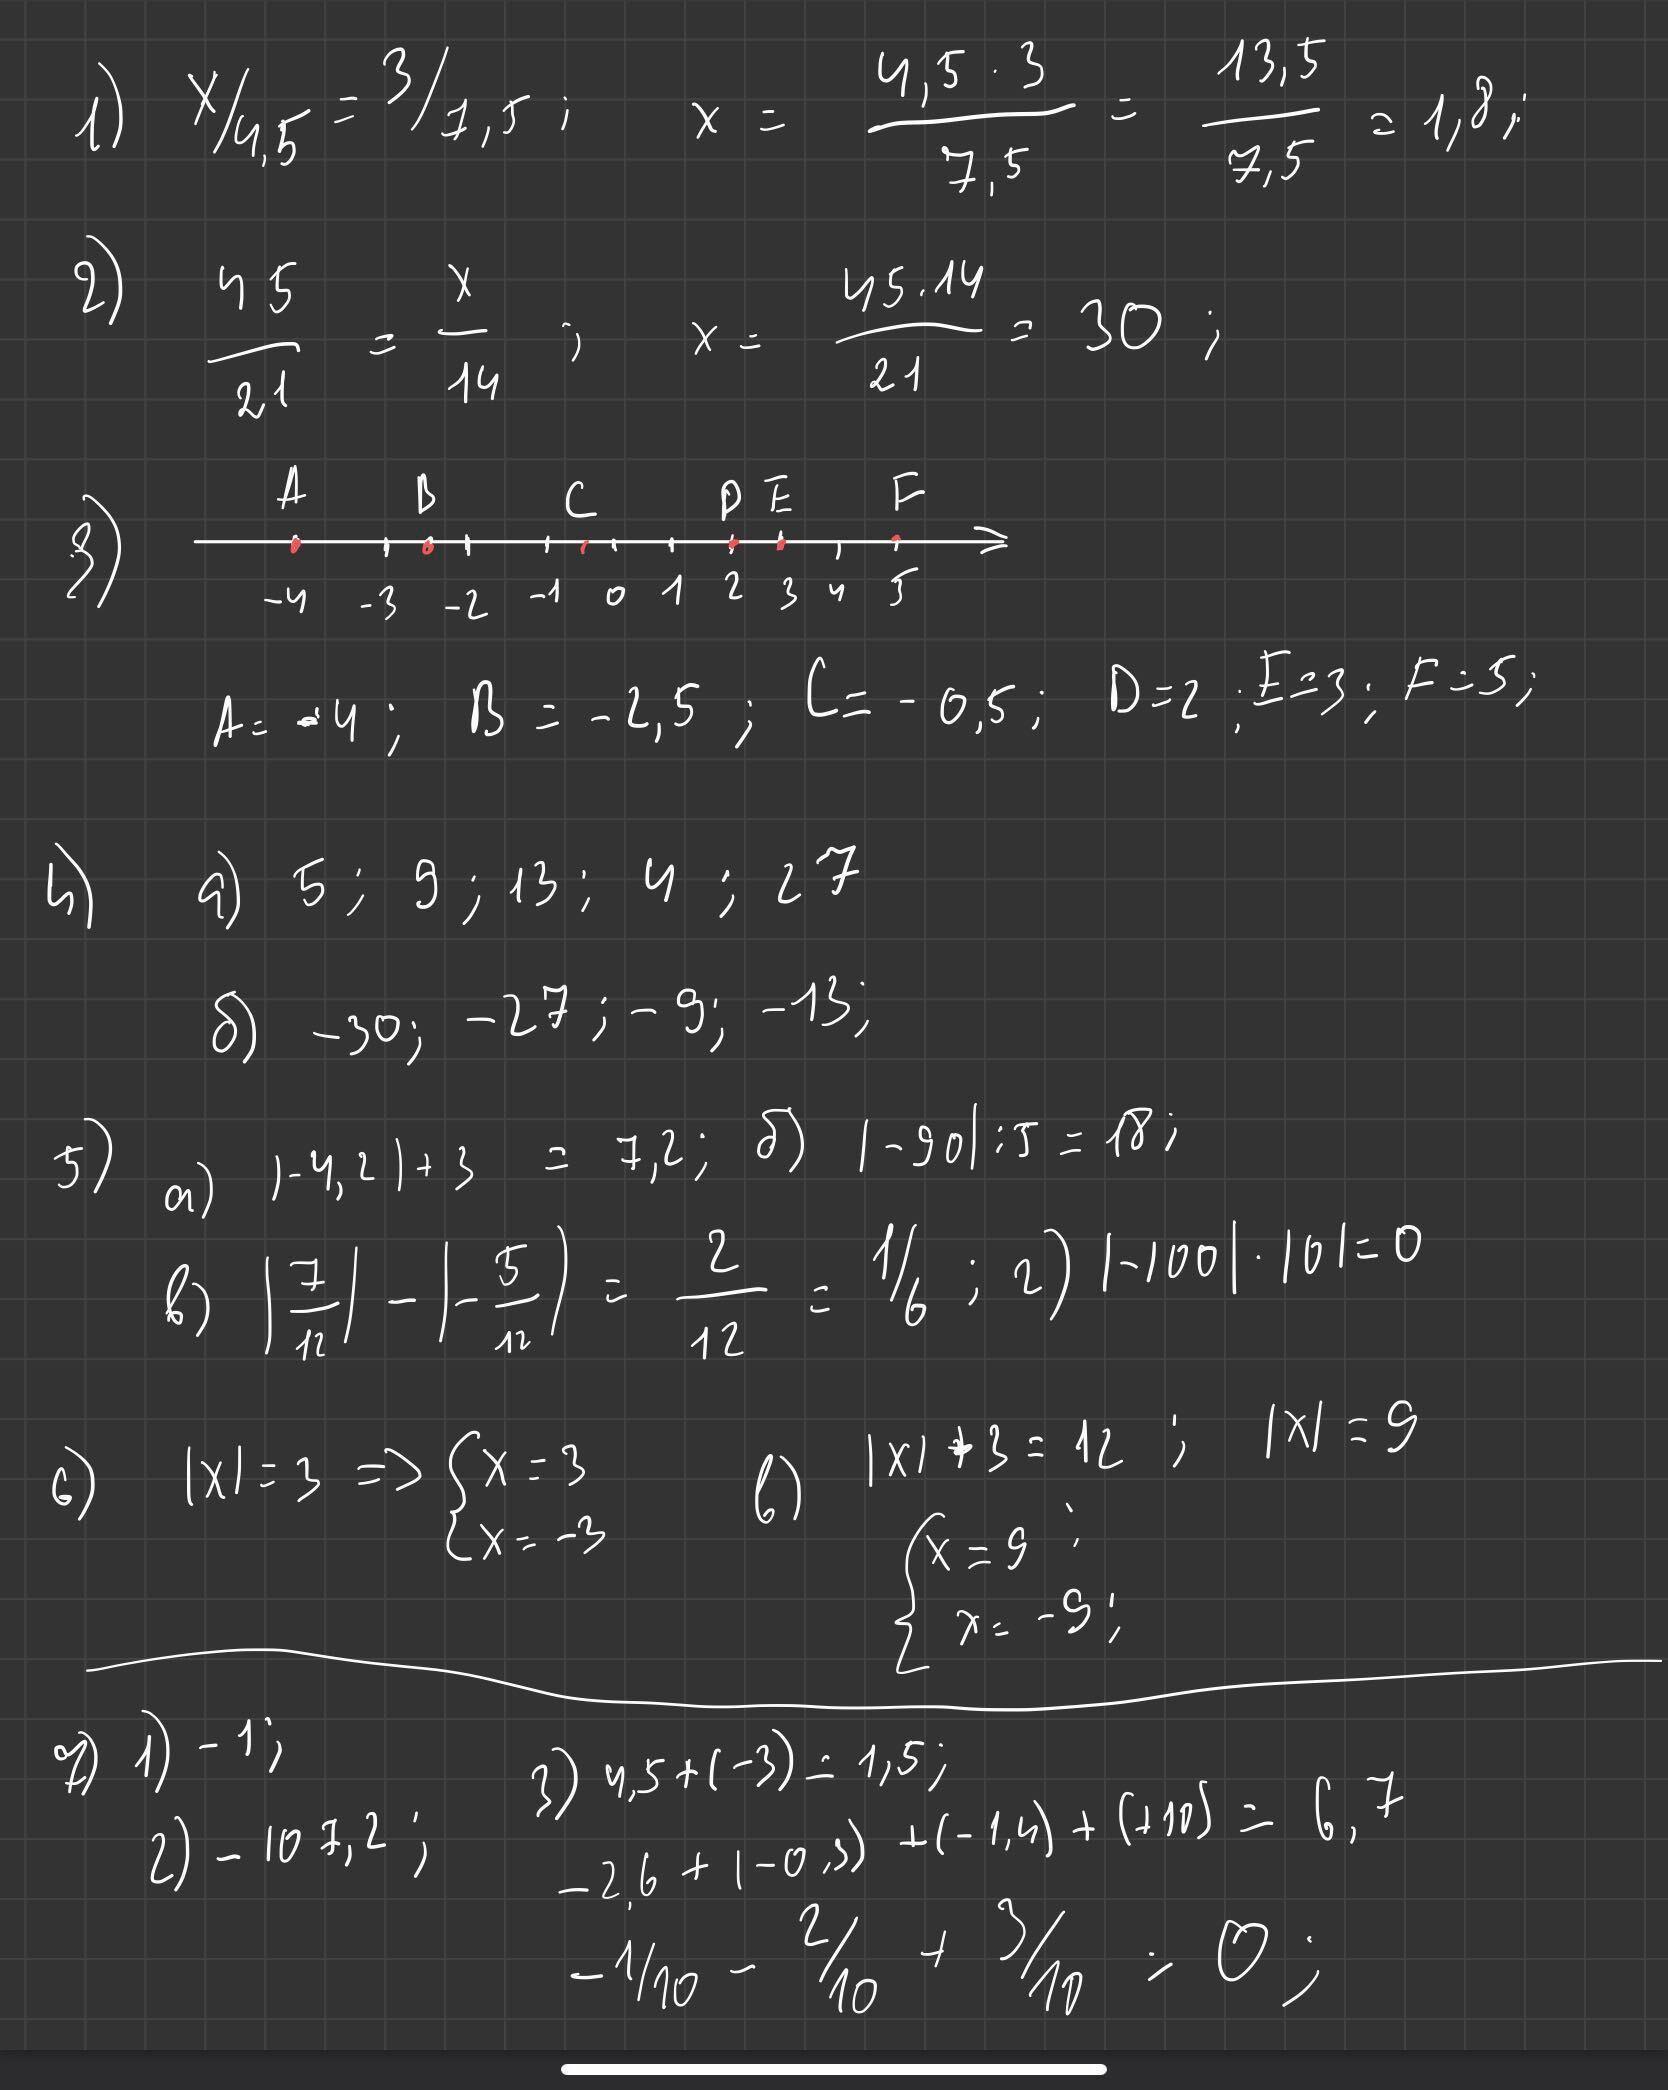 1) x/4,5 = 3/7,5 ; x = 4,5 · 3 / 7,5 = 13,5 / 7,5 = 1,8;
2) 45/21 = x/14 ; x = 45·14 / 21 = 30 ;
A B C D E F
3)
-4 -3 -2 -1 0 1 2 3 4 5
A = -4; B = -2,5 ; C = -0,5; D=2 ; E=3; F=5;
4) а) 5; 9; 13; 4; 27
б) -30; -27; -9; -13;
5) а) |-4,2|+3 = 7,2; б) |-90|:5 = 18;
в) |7/12| - |-5/12| = 2/12 = 1/6 ; г) |-100|·|0|=0
6) |x|=3 => { x = 3 в) |x|+3 = 12 ; |x| = 9
x = -3
{ x = 9 ;
x = -9;
7) 1) -1; 3) 4,5+(-3) = 1,5;
2) -107,2; -2,6 + (-0,3) + (-1,4) + (+10) = 6,7
-1/10 - 2/10 + 3/10 = 0;